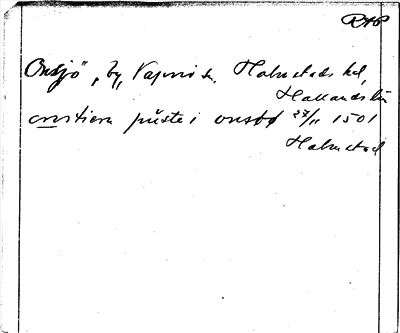 Onsjö, by, Vapnö sn, Halmstads hd,
Hallands län
cristiern püste i onsø 23/11 1501
Halmstad